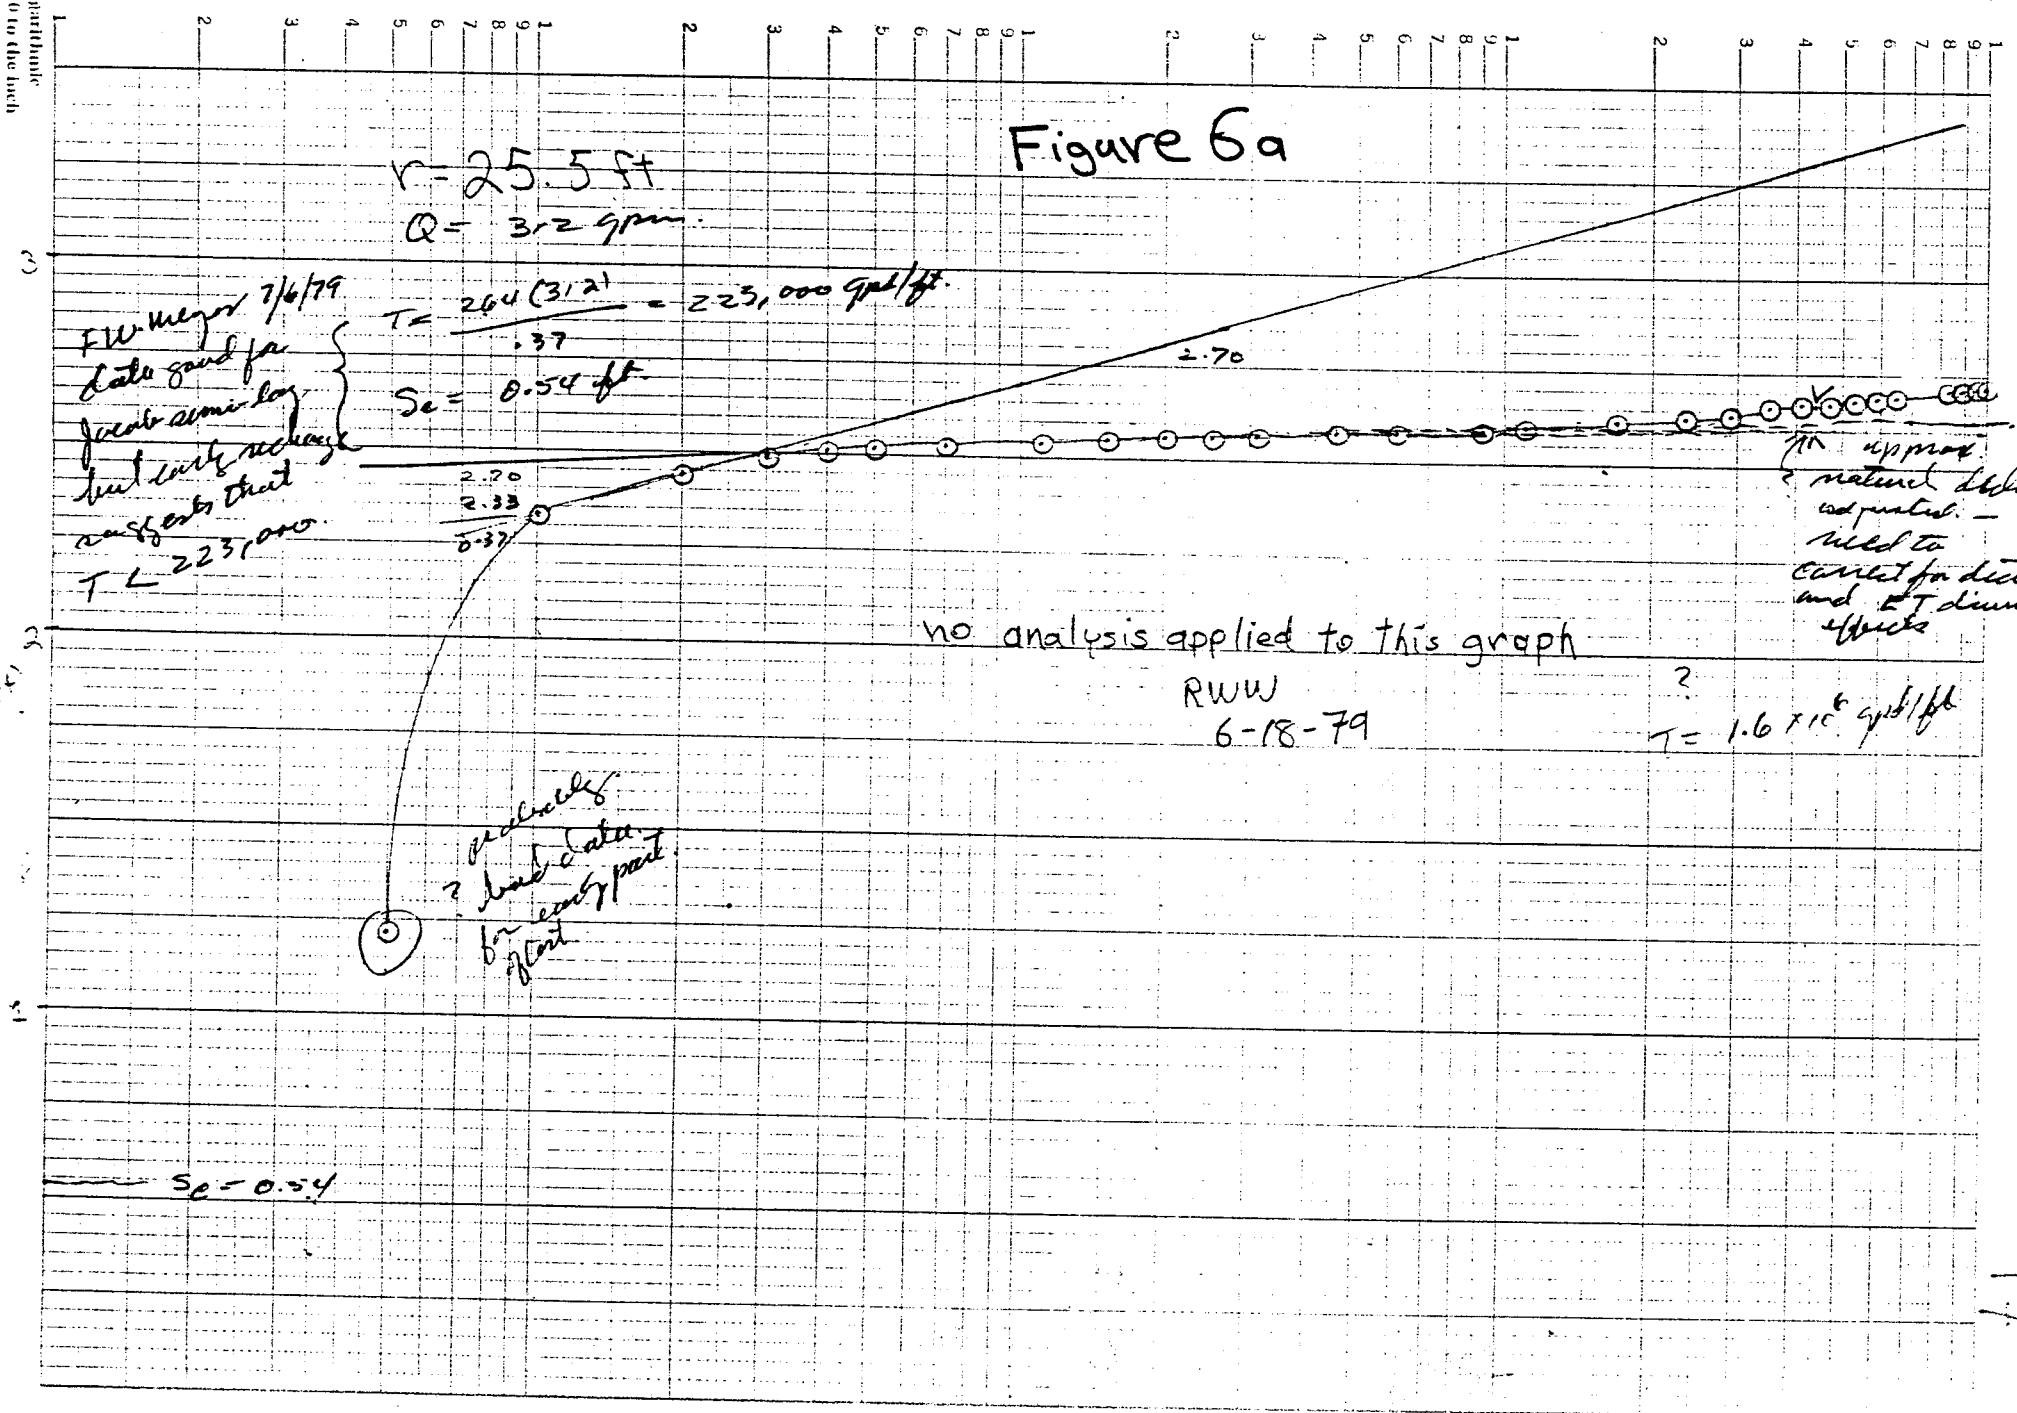 logarithmic
0 to the inch
1 2 3 4 5 6 7 8 9 1 2 3 4 5 6 7 8 9 1 2 3 4 5 6 7 8 9 1 2 3 4 5 6 7 8 9 1
Figure 6a
r = 25.5 ft
Q = 3.2 gpm.
T = 264 (312) / .37 = 223,000 gpd/ft.
Se = 0.54 ft.
FW Meyer 7/6/79
data good for
Jacob semi-log
but early recharge
suggests that
T < 223,000.
3
2
1
2.70
2.33
0.37
2.70
approx.
natural
adjusted. —
need to
correct for
and ET
effects
no analysis applied to this graph
RWW
6-18-79
?
T = 1.6 x 10⁶ gpd/ft
probably
? bad data
for early part
of test
Se = 0.54